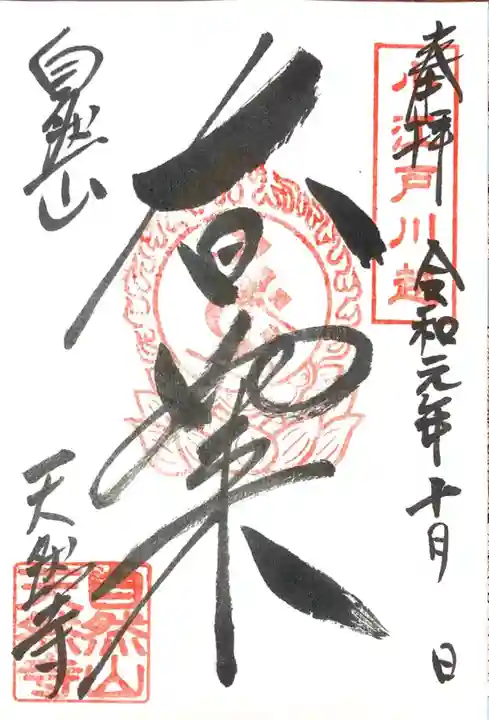 小江戸川越
奉拝 令和元年十月 日
大日如来
自然山
天然寺
自然山
天然寺